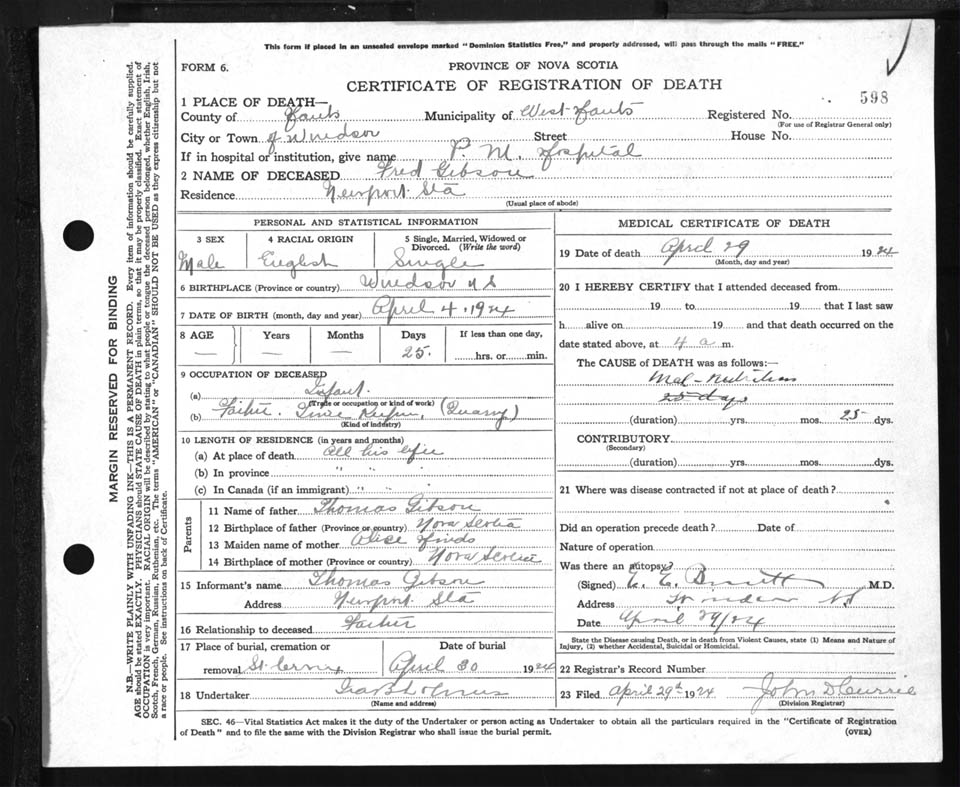 This form if placed in an unsealed envelope marked "Dominion Statistics Free," and properly addressed, will pass through the mails "FREE."
FORM 6.
PROVINCE OF NOVA SCOTIA
CERTIFICATE OF REGISTRATION OF DEATH
598
1 PLACE OF DEATH—
County of Hants Municipality of West Hants Registered No.
(For use of Registrar General only)
City or Town of Windsor Street House No.
If in hospital or institution, give name P. M. Hospital
2 NAME OF DECEASED Fred Gibson
Residence Newport Sta
(Usual place of abode)
PERSONAL AND STATISTICAL INFORMATION
3 SEX 4 RACIAL ORIGIN 5 Single, Married, Widowed or Divorced. (Write the word)
Male English Single
6 BIRTHPLACE (Province or country) Windsor N S
7 DATE OF BIRTH (month, day and year) April 4, 1924
8 AGE Years Months Days If less than one day,
— — — 25. hrs. or min.
9 OCCUPATION OF DECEASED
(a) Infant.
(Trade or occupation or kind of work)
(b) Father. Time Keeper, (Quarry)
(Kind of industry)
10 LENGTH OF RESIDENCE (in years and months)
(a) At place of death All his life
(b) In province " " "
(c) In Canada (if an immigrant) " "
Parents
11 Name of father Thomas Gibson
12 Birthplace of father (Province or country) Nova Scotia
13 Maiden name of mother Alice
14 Birthplace of mother (Province or country) Nova Scotia
15 Informant's name Thomas Gibson
Address Newport Sta
16 Relationship to deceased Father
17 Place of burial, cremation or Date of burial
removal St. April 30 1924
18 Undertaker
(Name and address)
MEDICAL CERTIFICATE OF DEATH
19 Date of death April 29 1924
(Month, day and year)
20 I HEREBY CERTIFY that I attended deceased from
19 to 19 that I last saw
h alive on 19 and that death occurred on the
date stated above, at 4 a m.
The CAUSE of DEATH was as follows:—
Mal-nutrition
25 days
(duration) yrs. mos. 25 dys.
CONTRIBUTORY
(Secondary)
(duration) yrs. mos. dys.
21 Where was disease contracted if not at place of death?
Did an operation precede death? Date of
Nature of operation
Was there an autopsy?
(Signed) E. E. M.D.
Address Windsor NS
Date April 29/24
State the Disease causing Death, or in death from Violent Causes, state (1) Means and Nature of Injury, (2) whether Accidental, Suicidal or Homicidal.
22 Registrar's Record Number
23 Filed April 29th 1924 John D Currie
(Division Registrar)
SEC. 46—Vital Statistics Act makes it the duty of the Undertaker or person acting as Undertaker to obtain all the particulars required in the "Certificate of Registration
of Death" and to file the same with the Division Registrar who shall issue the burial permit.
(OVER)
MARGIN RESERVED FOR BINDING
N.B.—WRITE PLAINLY WITH UNFADING INK—THIS IS A PERMANENT RECORD. Every item of information should be carefully supplied.
AGE should be stated EXACTLY. PHYSICIANS should STATE CAUSE OF DEATH in plain terms, so that it may be properly classified. Exact statement of
OCCUPATION is very important. RACIAL ORIGIN will be described by stating to what people or tongue the deceased person belonged, whether English, Irish,
Scotch, French, German, Russian, Ruthenian, etc. The terms "AMERICAN" or "CANADIAN" SHOULD NOT BE USED as they express citizenship but not
a race or people. See instructions on back of Certificate.